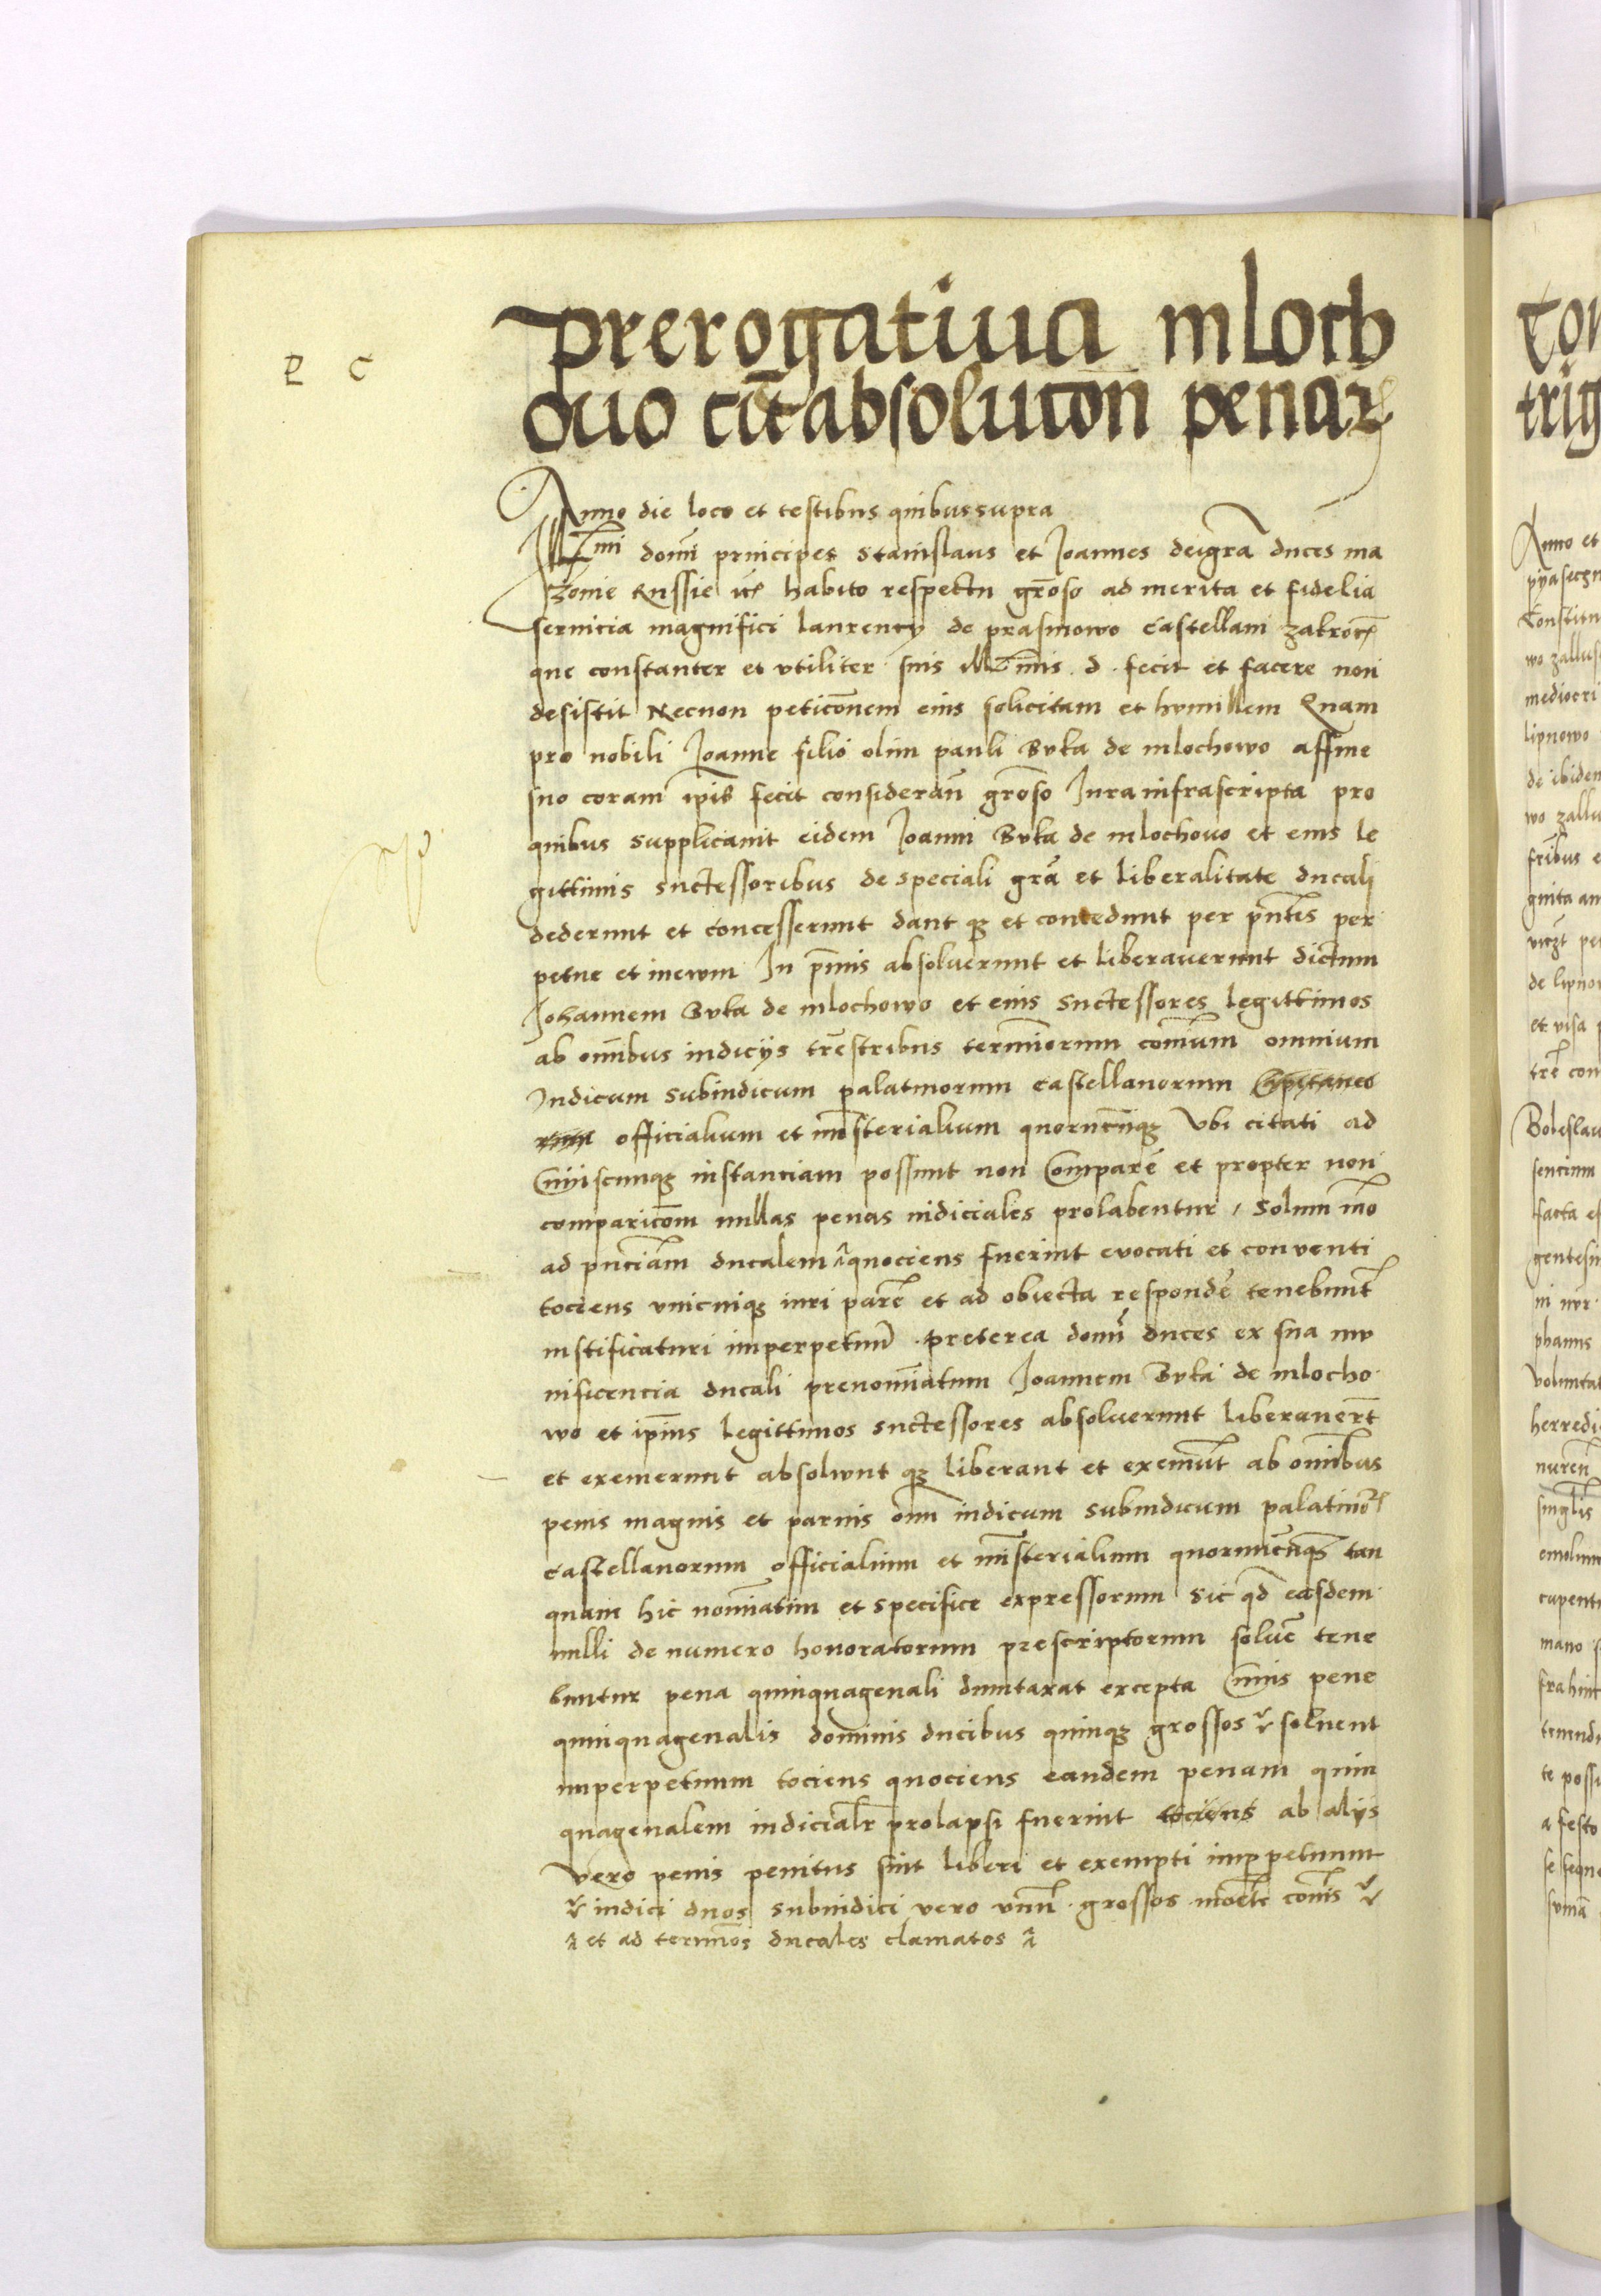 P C
prerogatiua mloch
ouo cū absolucōn penarꝝ
Anno die loco et testibus quibus supra
Illmi domī principes Stanislaus et Joannes dei grā duces ma
zouie Russie ꝛc̄ habito respectu grōso ad merita et fidelia
seruicia magnifici laurency de prasmowo Castellani zakrocꝫ
que constanter et vtiliter suis illmis d. fecit et facere non
desistit Necnon peticōnem eius solicitam et humillem Quam
pro nobili Joanne filio olim pauli Buka de mlochowo affine
suo coram ip̄is fecit considerañ grōso Jura infrascripta pro
quibus supplicauit eidem Joanni Buka de mlochouo et eius le
gittimis successoribus de speciali grā et liberalitate ducali
dederunt et concesserunt dant qꝫ et concedunt per pn̄tis per
petue et in ewm In p̄mis absoluerunt et liberauerunt dictum
Johannem Buka de mlochowo et eius successores legittimos
ab om̄ibus iudicys tr̄estribus termīorum com̄ium omnium
Judicum subiudicum palatinorum castellanorum Capitaneo
rum officialium et mīsterialium quorucūqꝫ vbi citati ad
Cuiuscunqꝫ instanciam possunt non Comparē et propter non
comparicōem nullas penas iudiciales prolabentur / Solum mō
ad pn̄ciam ducalem quociens fuerint euocati et conuenti
tociens vnicuiqꝫ iuri parē et ad obiecta respondē tenebunt̄
iustificaturi imperpetuū Preterea domī duces ex sua mu
nificencia ducali prenomīatum Joannem Buka de mlocho
wo et ip̄ius legittimos successores absoluerunt liberauerūt
et exemerunt absoluunt qꝫ liberant et eximūt ab om̄ibus
penis magnis et paruis om̄i iudicum subiudicum palatinoꝝ
castellanorum officialium et mīsterialium quorumcūqꝫ tan
quam hic nomīatim et specifice expressorum sic qd̄ easdem
nulli de numero honoratorum prescriptorum soluē tene
buntur pena quinquagenali dumtaxat excepta Cuius pene
quinquagenalis dominis ducibus quinqꝫ grossos soluent
imperpetuum tociens quociens eandem penam quin
quagenalem iudicialr̄ prolapsi fuerint tociens ab alys
vero penis penitus sint liberi et exempti imperpetuum
iudici duos subiudici vero vnū grossos mōete com̄is
et ad termīos ducales clamatos